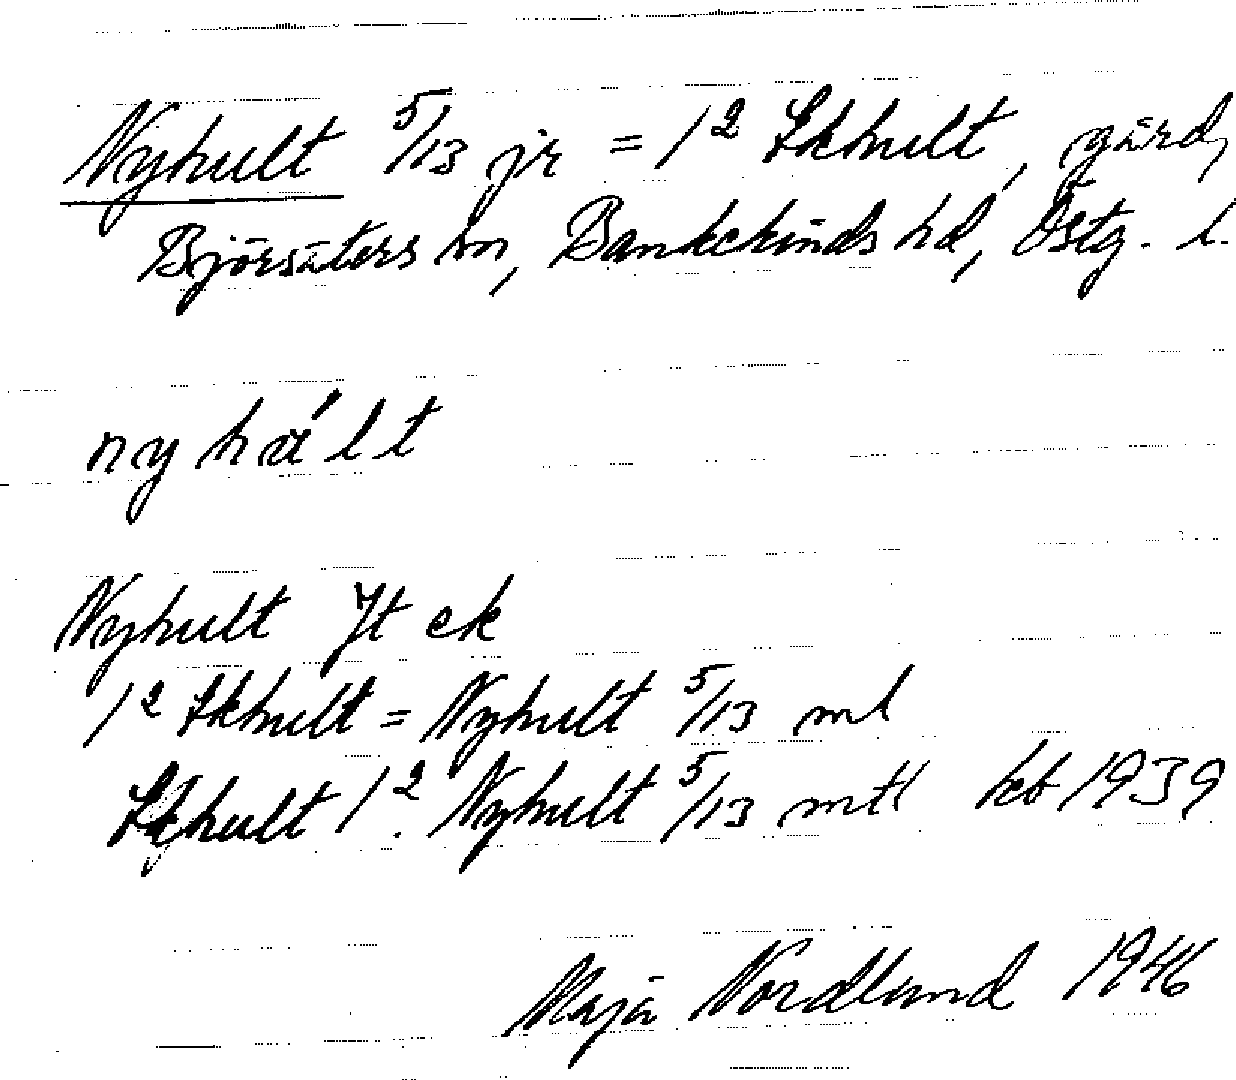 Nyhult 5/13 jr = 1² Ekhult, gård,
Björsäters sn, Bankekinds hd, Östg. l.
nyhúlt
Nyhult Jt ek
1² Ekhult = Nyhult 5/13 ml
Ekhult 1². Nyhult 5/13 mtl kb 1939
Maja Nordlund 1946